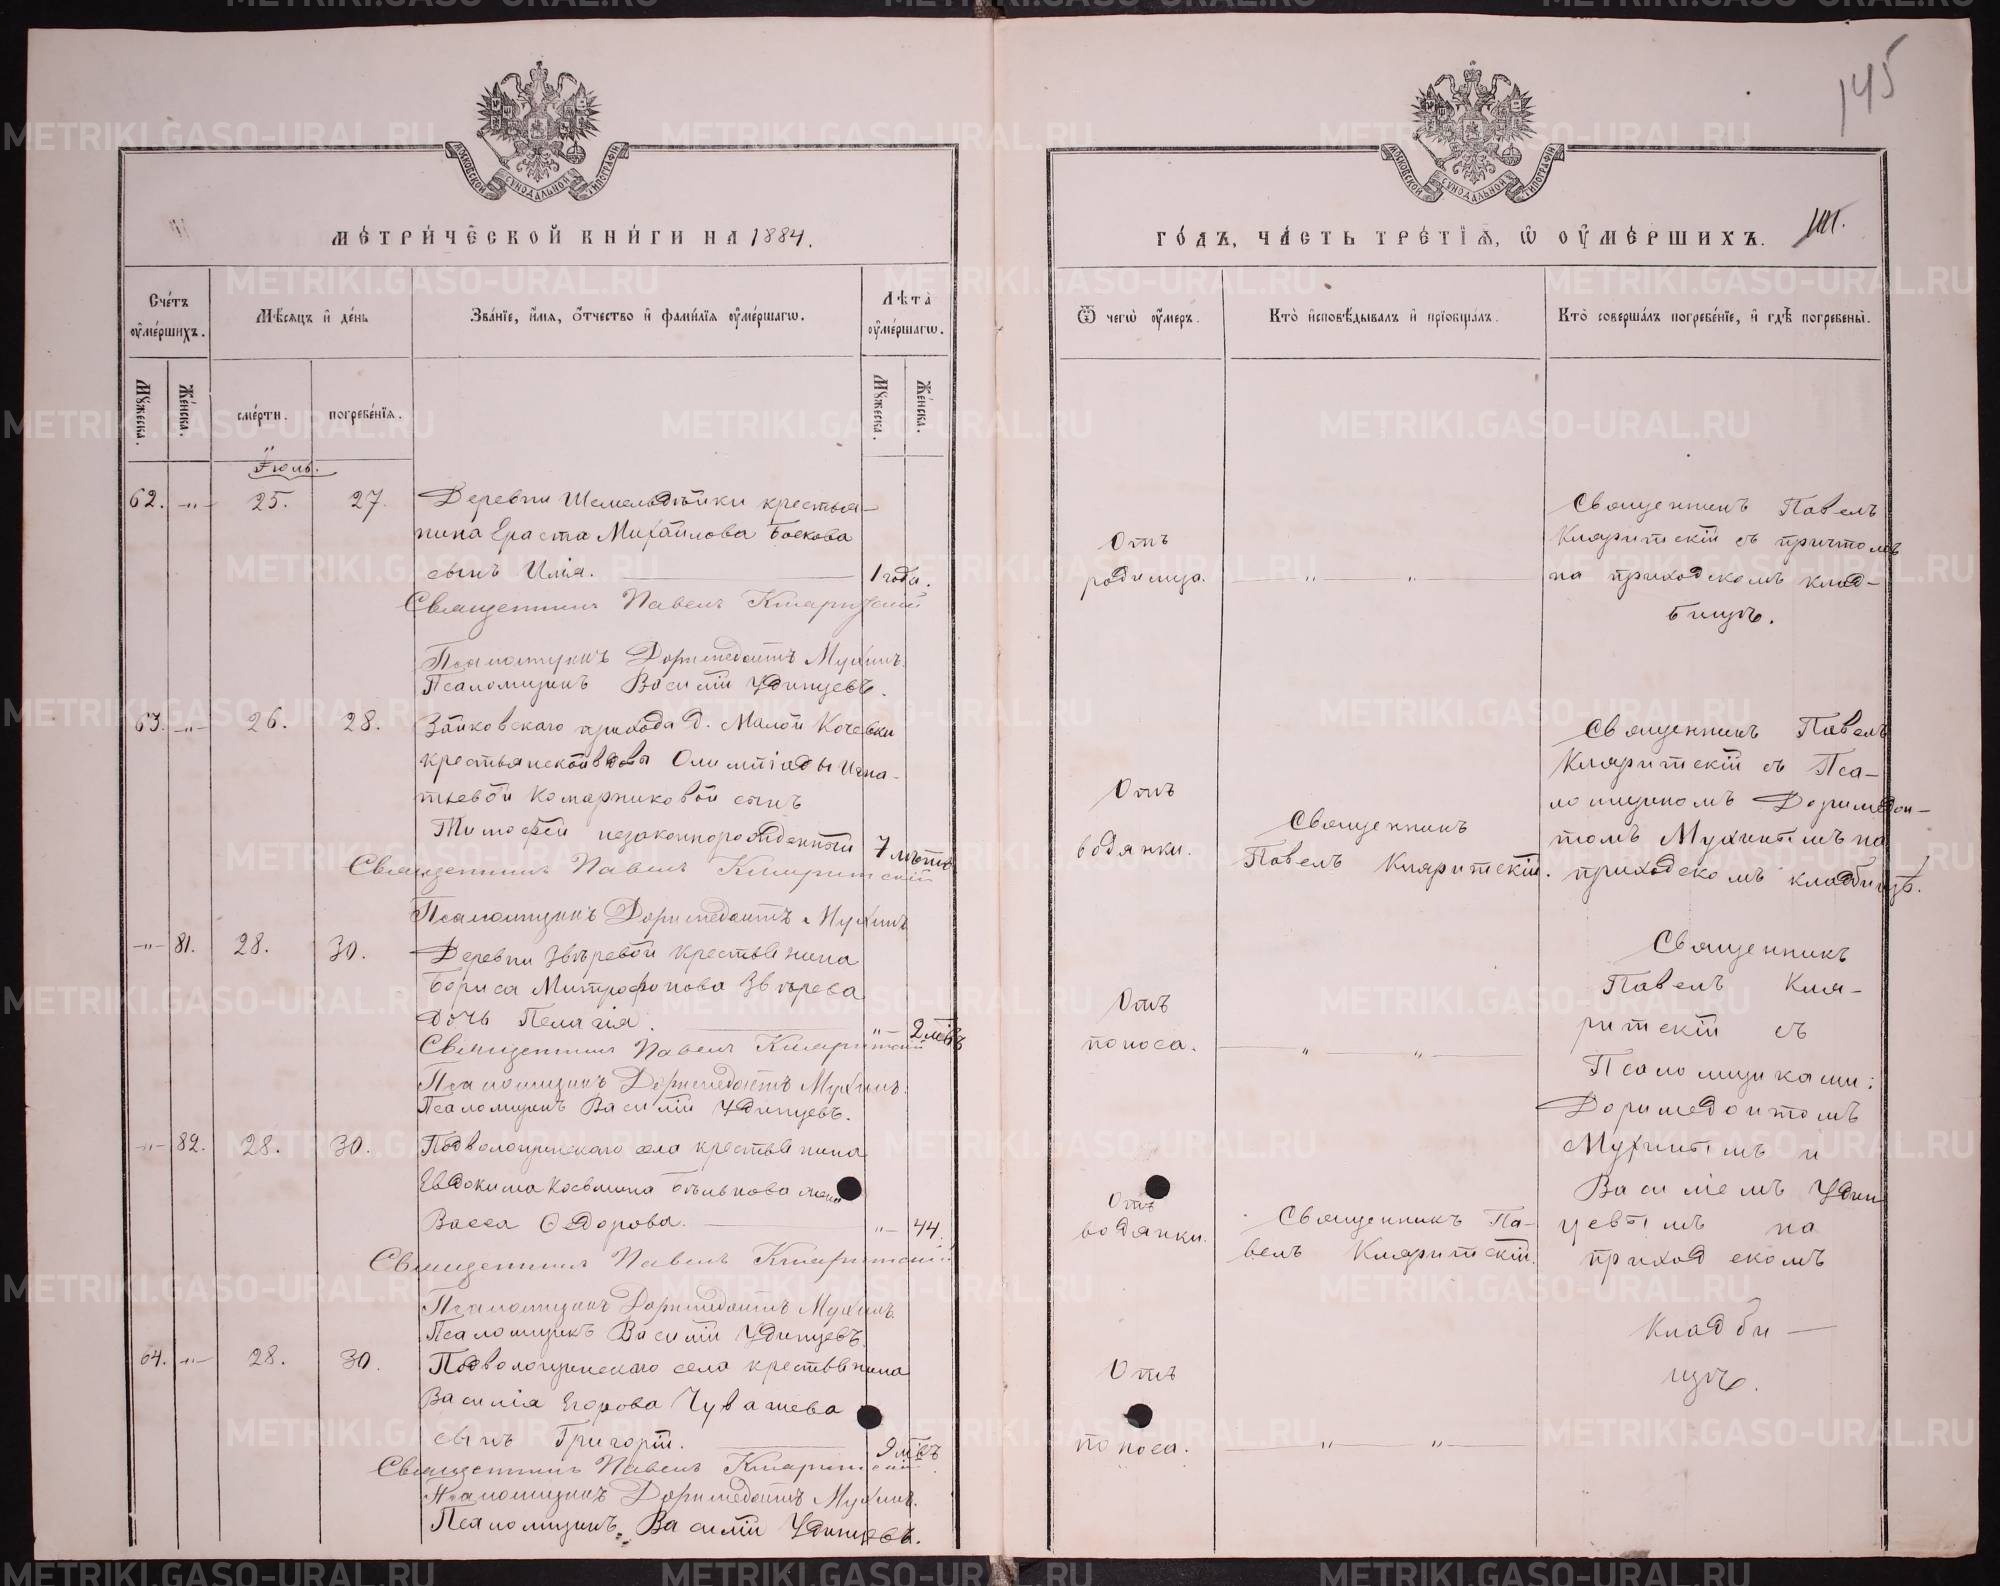 145
МОСКОВСКОЙ СУНОДАЛЬНОЙ ТИПОГРАФІИ
МОСКОВСКОЙ СУНОДАЛЬНОЙ ТИПОГРАФІИ
МЕТРИЧЕСКОЙ КНИГИ НА 1884.
Счетъ оумершихъ.
Мѣсяцъ и день
Званіе, имя, отчество и фамилія оумершагω.
Лѣта оумершагω.
Мужеска.
Женска.
смерти.
погребенія.
Мужеска.
Женска.
Іюль.
62. -„- 25. 27. Деревни Шемелодейки крестья-
нина Ераста Михайлова Боскова
сынъ Илія. 1 года.
Священникъ Павелъ Кляритскій
Псаломщикъ Доримедонтъ Мухинъ.
Псаломщикъ Василій Удинцевъ.
63. -„- 26. 28. Зайковскаго прихода д. Малой Кочевки
крестьянской вдовы Олимпіады Игна-
тьевой Комарниковой сынъ
Тимофей незаконнорожденный 7 лѣтъ
Священникъ Павелъ Кляритскій
Псаломщикъ Доримедонтъ Мухинъ
-„- 81. 28. 30. Деревни Звѣревой крестьянина
Бориса Митрофанова Звѣрева
дочь Пелагія. -„- 2 мѣс
Священникъ Павелъ Кляритскій
Псаломщикъ Доримедонтъ Мухинъ.
Псаломщикъ Василій Удинцевъ.
-„- 82. 28. 30. Подволошинскаго села крестьянина
Евдокима Косьмина жен
Васса Ѳедорова. -„- 44.
Священникъ Павелъ Кляритскій
Псаломщикъ Доримедонтъ Мухинъ.
Псаломщикъ Василій Удинцевъ.
64. -„- 28. 30. Подволошинскаго села крестьянина
Василія Егорова Чувашева
сынъ Григорій. 9 мѣс
Священникъ Павелъ Кляритскій
Псаломщикъ Доримедонтъ Мухинъ.
Псаломщикъ Василій Удинцевъ.
ГОДЪ, ЧАСТЬ ТРЕТІЯ, Ѡ ОУМЕРШИХЪ. III.
Ѿ чегω оумеръ.
Кто исповѣдывалъ и пріобщалъ.
Кто совершалъ погребеніе, и гдѣ погребены.
Отъ
родимца. „ „
Священникъ Павелъ
Кляритскій съ причтомъ
на приходскомъ клад-
бищѣ.
Отъ
водянки.
Священникъ
Павелъ Кляритскій.
Священникъ Павелъ
Кляритскій съ Пса-
ломщикомъ Доримедон-
томъ Мухинымъ на
приходскомъ кладбищѣ.
Отъ
поноса. „ „
Отъ
водянки.
Священникъ Па-
велъ Кляритскій.
Отъ
поноса. „ „
Священникъ
Павелъ Кля-
ритскій съ
Псаломщиками:
Доримедонтомъ
Мухинымъ и
Василіемъ Удин
цевымъ на
приходскомъ
кладби-
щѣ.
METRIKI.GASO-URAL.RU